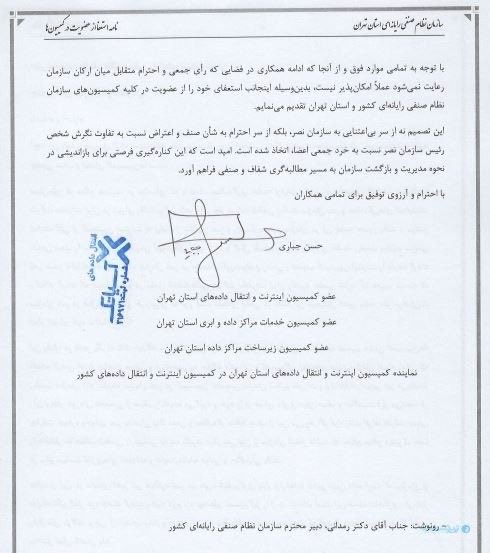 سازمان نظام صنفی رایانه‌ای استان تهران
نامه استعفا از عضویت در کمیسیون‌ها
با توجه به تمامی موارد فوق و از آنجا که ادامه همکاری در فضایی که رأی جمعی و احترام متقابل میان ارکان سازمان
رعایت نمی‌شود عملاً امکان‌پذیر نیست، بدین‌وسیله اینجانب استعفای خود را از عضویت در کلیه کمیسیون‌های سازمان
نظام صنفی رایانه‌ای کشور و استان تهران تقدیم می‌نمایم.
این تصمیم نه از سر بی‌اعتنایی به سازمان نصر، بلکه از سر احترام به شأن صنف و اعتراض نسبت به تفاوت نگرش شخص
رئیس سازمان نصر نسبت به خرد جمعی اعضاء اتخاذ شده است. امید است که این کناره‌گیری فرصتی برای بازاندیشی در
نحوه مدیریت و بازگشت سازمان به مسیر مطالبه‌گری شفاف و صنفی فراهم آورد.
با احترام و آرزوی توفیق برای تمامی همکاران
حسن جباری
انتقال داده های
آسیاتک
شماره ثبت:
عضو کمیسیون اینترنت و انتقال داده‌های استان تهران
عضو کمیسیون خدمات مراکز داده و ابری استان تهران
عضو کمیسیون زیرساخت مراکز داده استان تهران
نماینده کمیسیون اینترنت و انتقال داده‌های استان تهران در کمیسیون اینترنت و انتقال داده‌های کشور
رونوشت: جناب آقای دکتر رمدانی، دبیر محترم سازمان نظام صنفی رایانه‌ای کشور